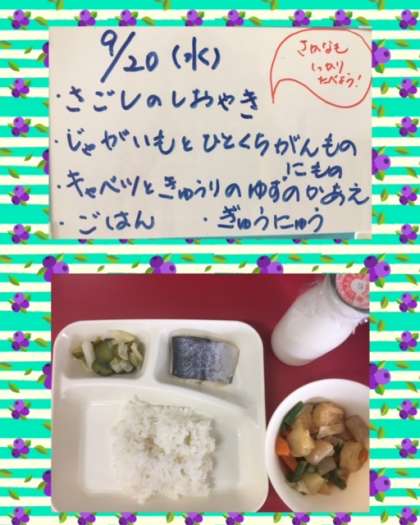 9/20(水)
さかなも
しっかり
たべよう!
・さごしのしおやき
・じゃがいもとひとくちがんもの
にもの
・キャベツときゅうりのゆずのかあえ
・ごはん ・ぎゅうにゅう